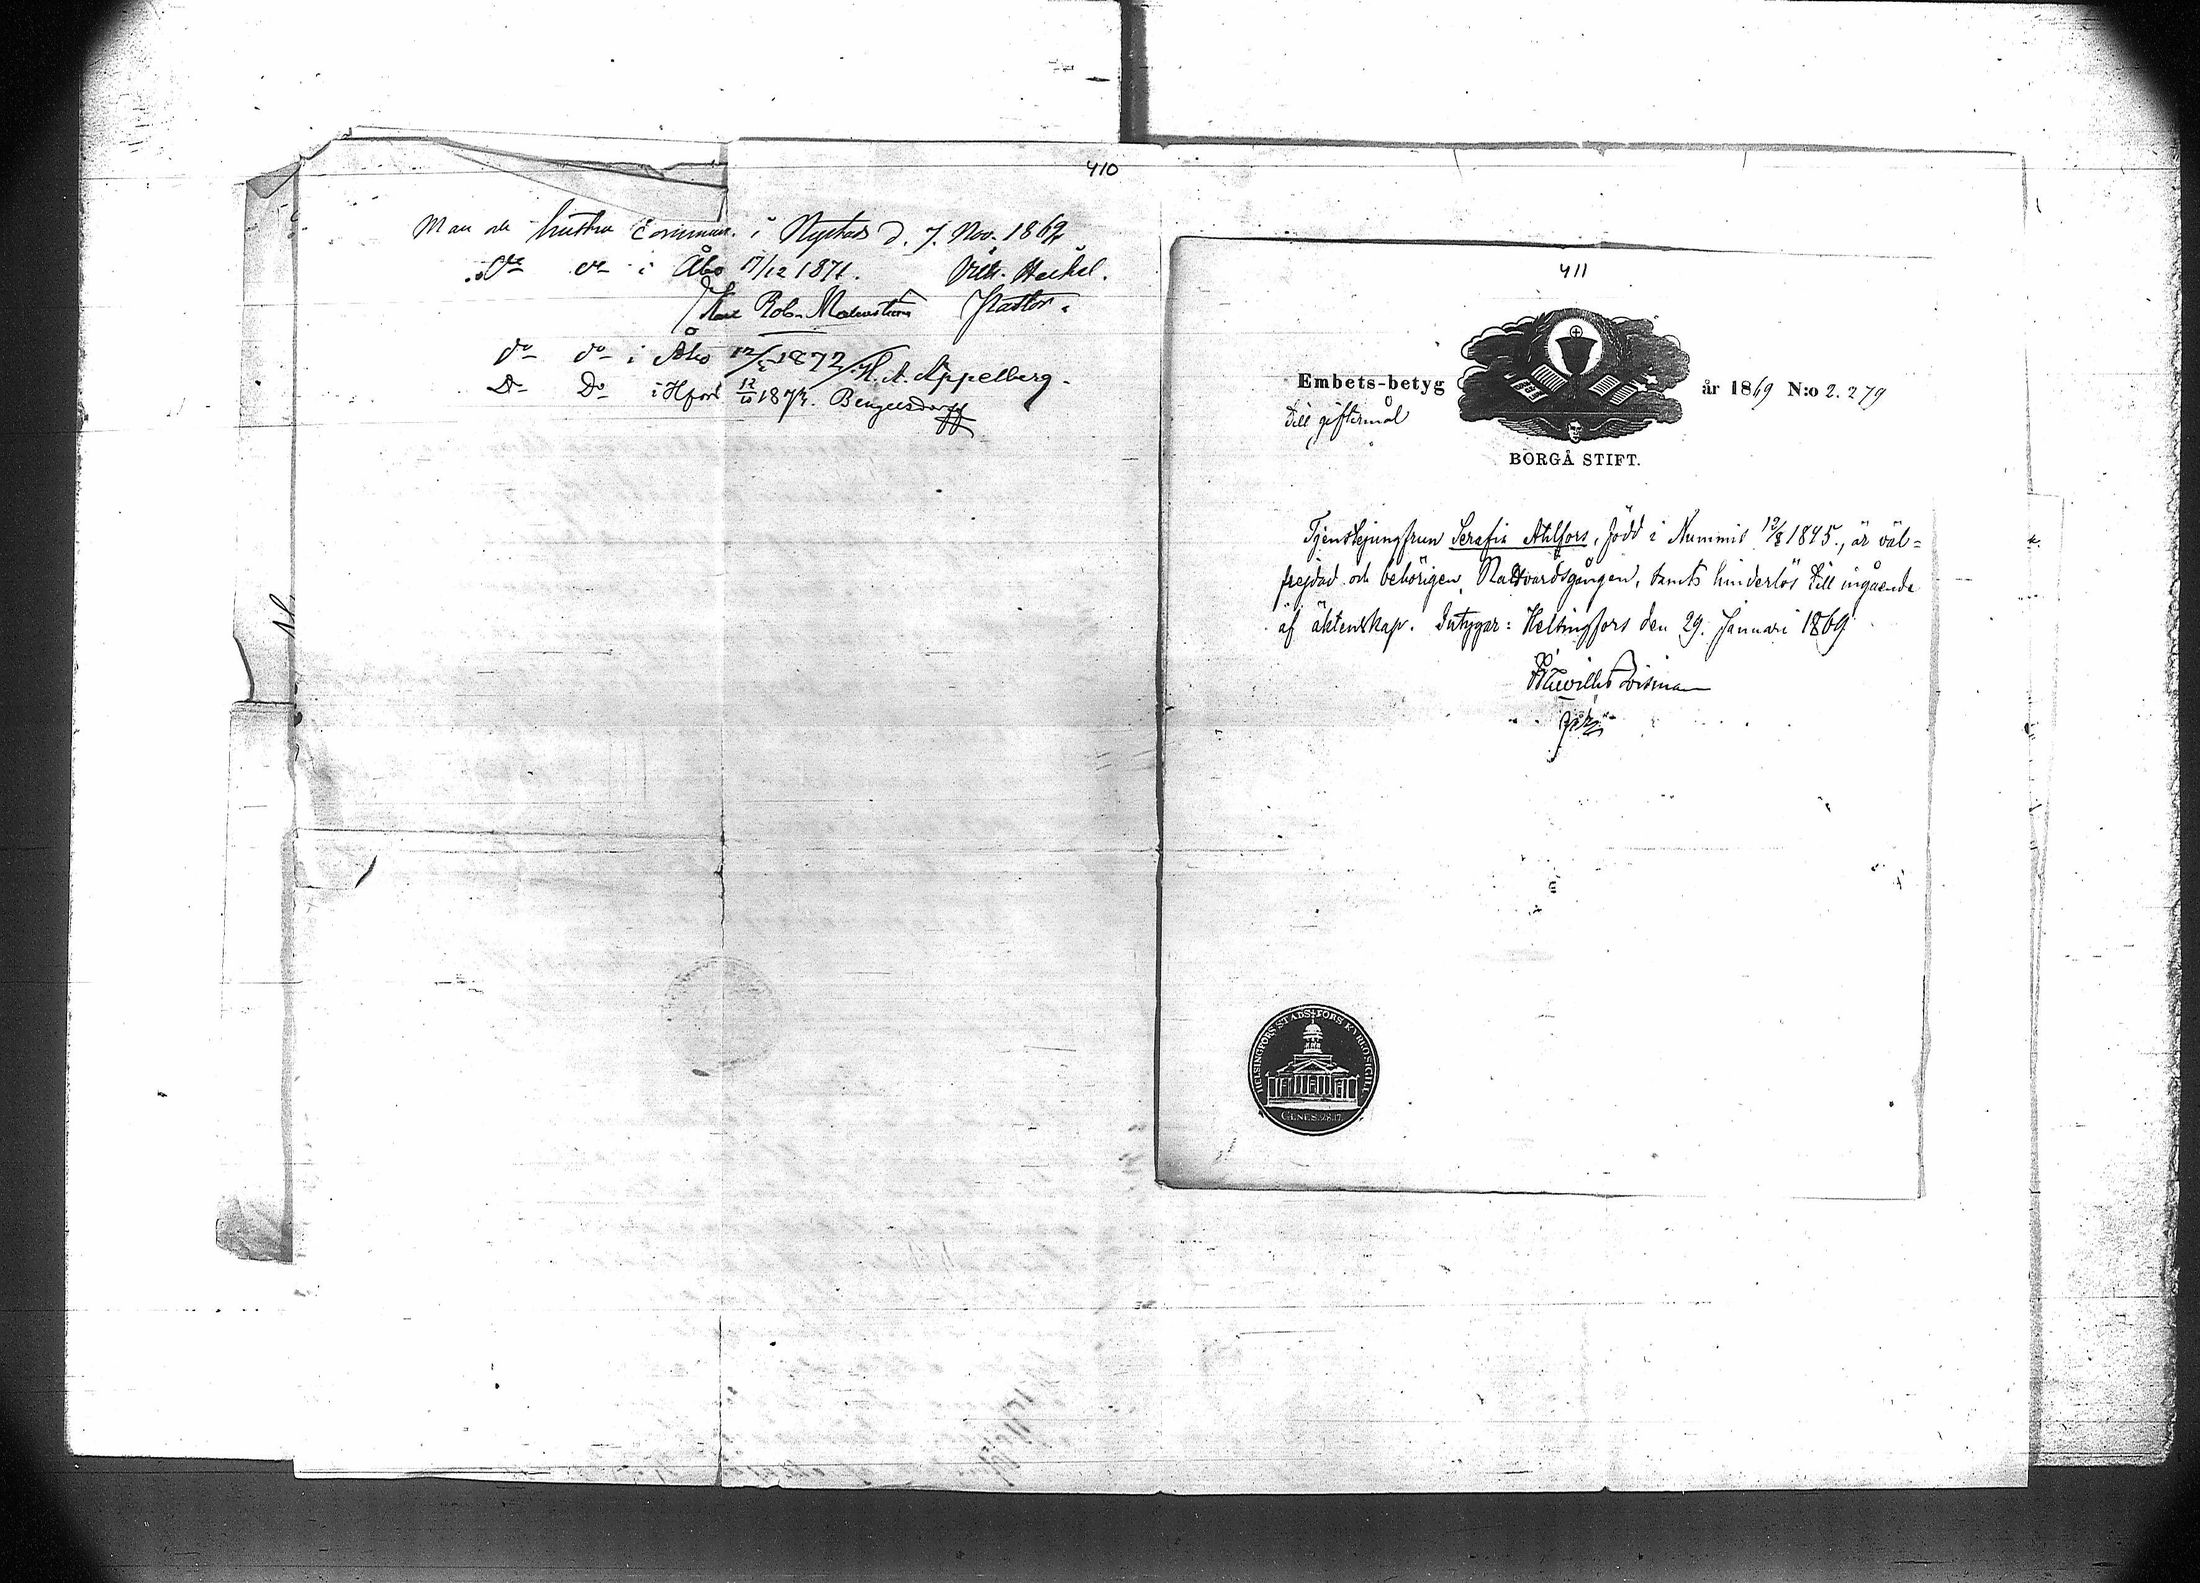 410
Man och hustru commun. i Nystad d. 7. Nov. 1869
do do i Åbo 17/12 1871. Heikel.
Rob. Malmström Pastor.
do do i Åbo 1872 K. A. Appelberg.
Do Do i Hfors 12/10 1873. Bengelsdorff
411
Embets-betyg år 1869 N:o 2.279
till giftermål
BORGÅ STIFT.
Tjenstejungfrun Serafia Ahlfors, född i Nummis 12/8 1845., är väl-
frejdad och behörigen Nattvardsgången, samt hinderlös till ingående
af äktenskap. Intygar: Helsingfors den 29. Januari 1869
HELSINGFORS STADSFÖRS KYRKOSIGILL
GENES. 28.17.